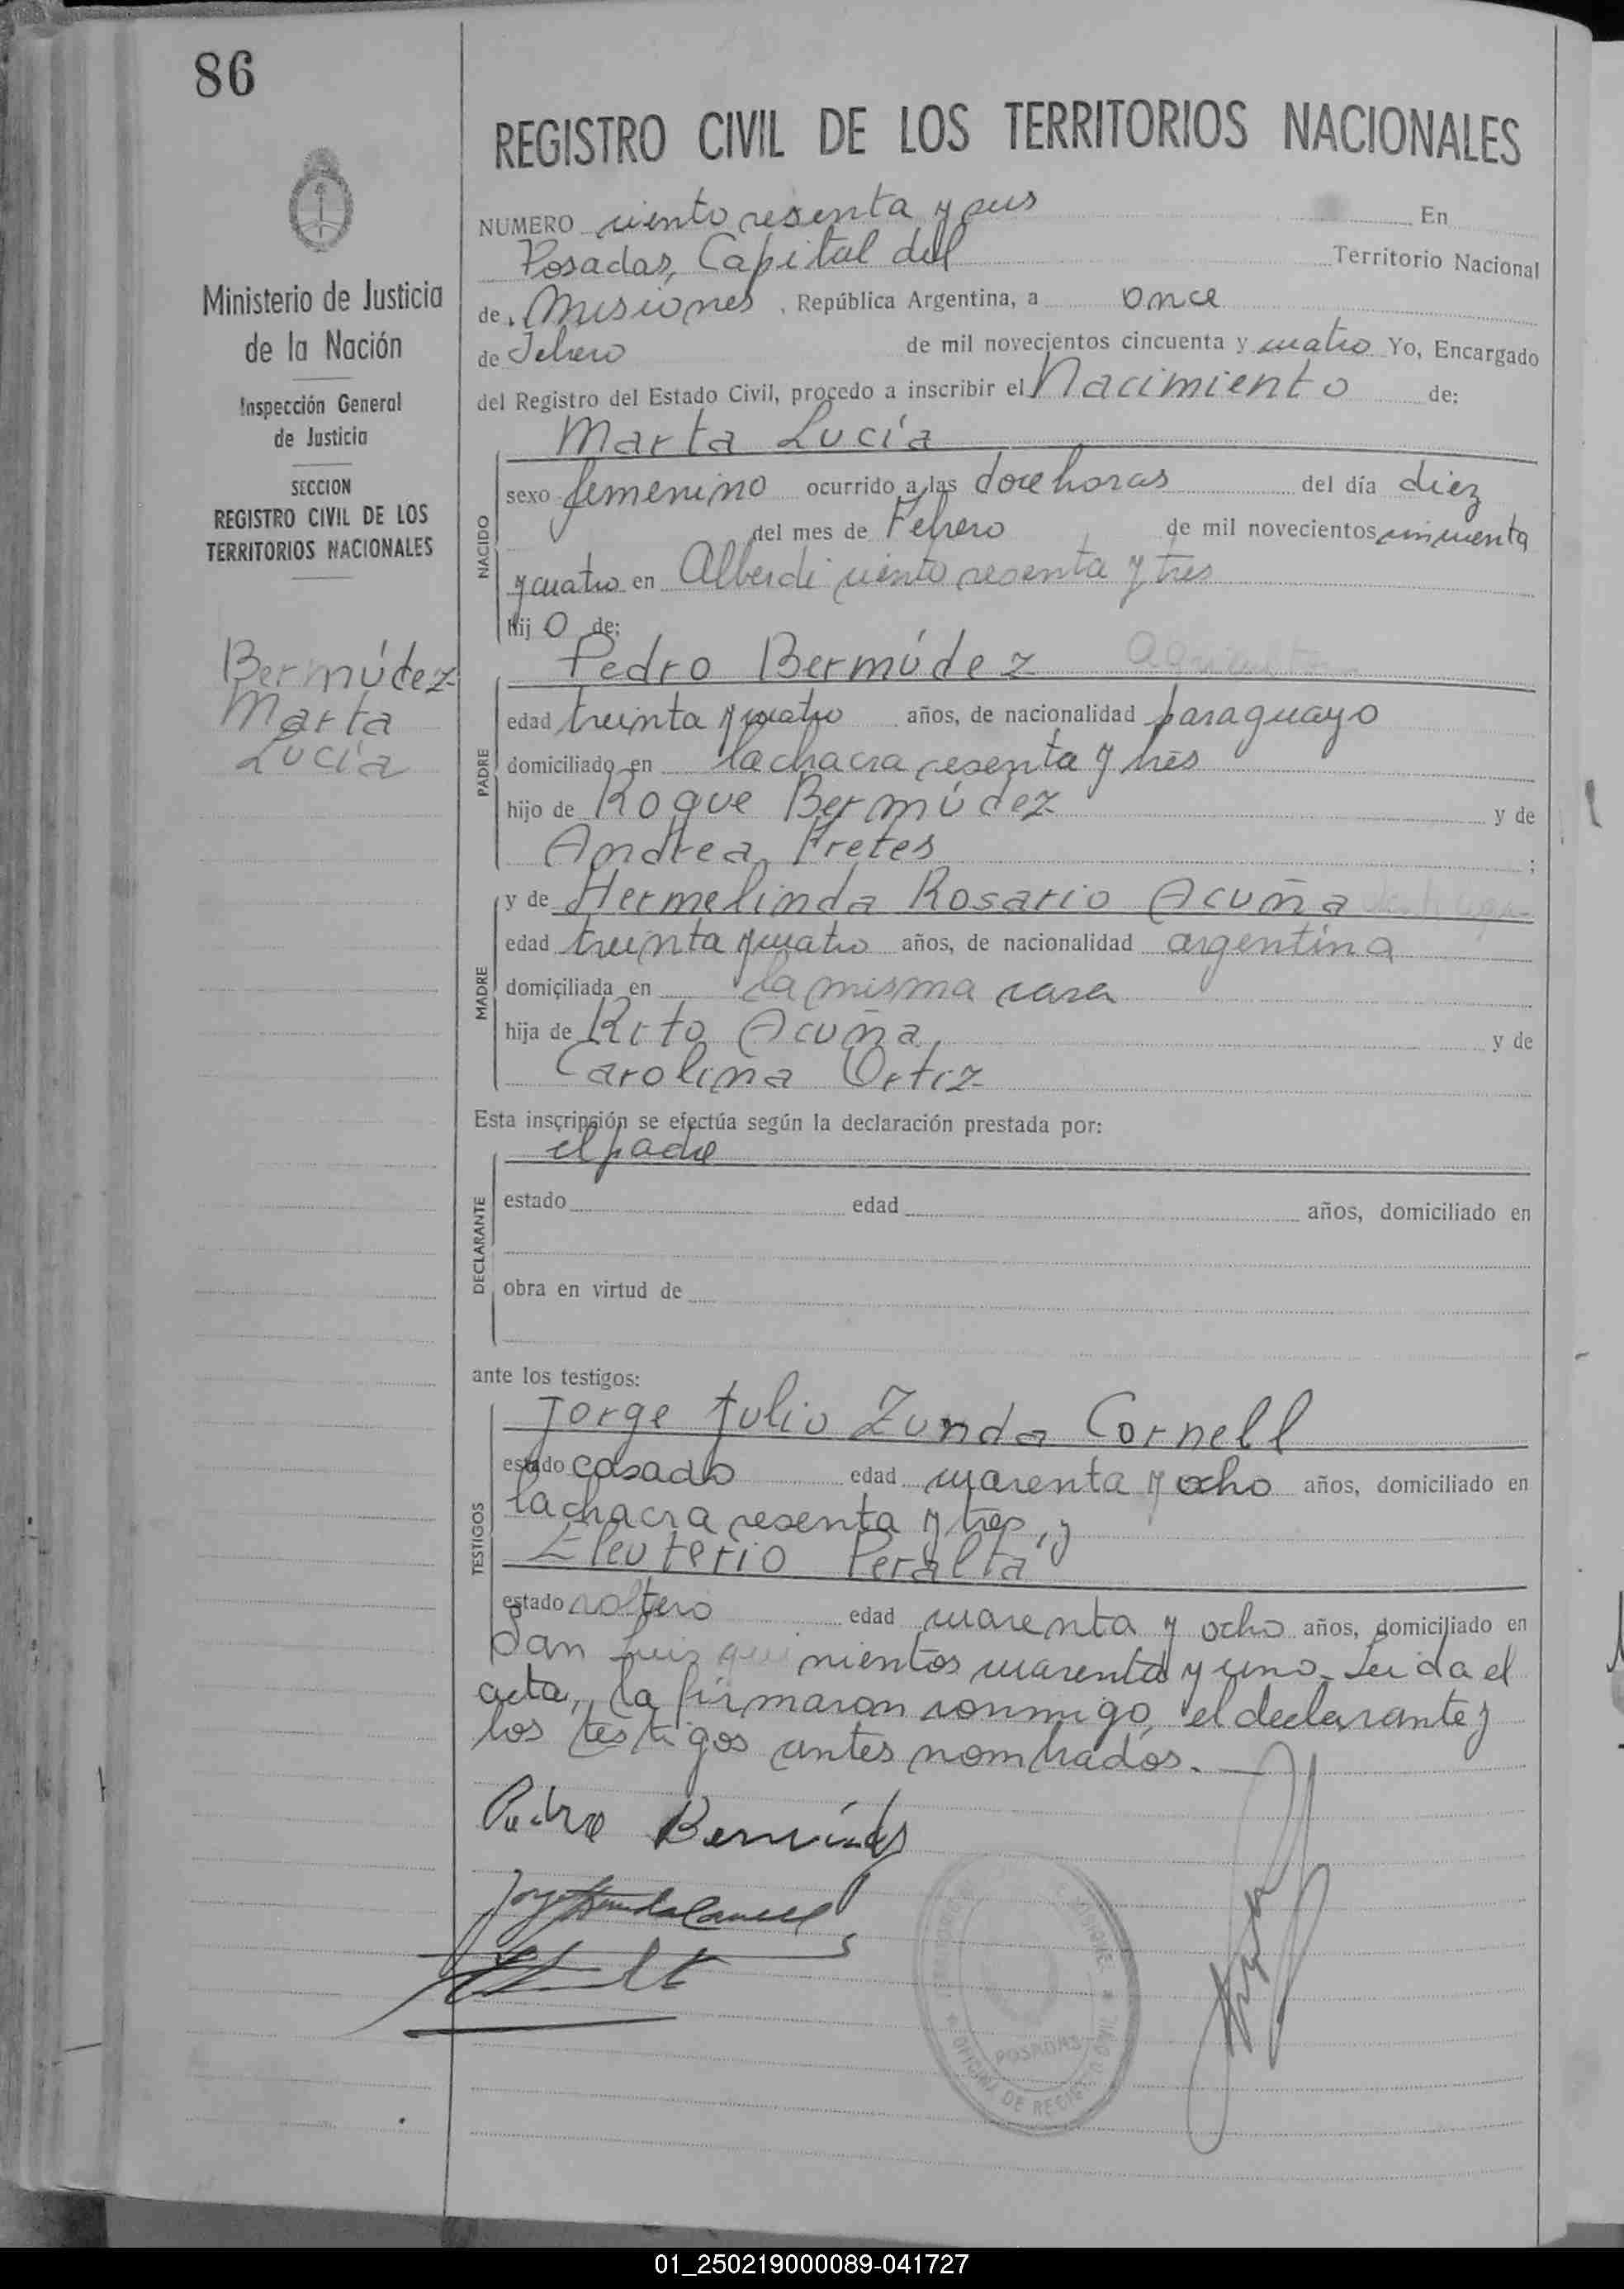 86
REGISTRO CIVIL DE LOS TERRITORIOS NACIONALES
Ministerio de Justicia
de la Nación
Inspección General
de Justicia
SECCION
REGISTRO CIVIL DE LOS
TERRITORIOS NACIONALES
Bermúdez
Marta
Lucía
NUMERO ciento sesenta y seis En
Posadas, Capital del Territorio Nacional
de Misiones, República Argentina, a once
de Febrero de mil novecientos cincuenta y cuatro Yo, Encargado
del Registro del Estado Civil, procedo a inscribir el Nacimiento de:
Marta Lucía
NACIDO
sexo femenino ocurrido a las doce horas del día diez
del mes de Febrero de mil novecientos cincuenta
y cuatro en Alberdi ciento sesenta y tres
hij o de:
Pedro Bermúdez agricultor
PADRE
edad treinta y cuatro años, de nacionalidad paraguayo
domiciliado en la chacra sesenta y tres
hijo de Roque Bermúdez y de
Andrea Fretes ;
MADRE
y de Hermelinda Rosario Acuña
edad treinta y cuatro años, de nacionalidad argentina
domiciliada en la misma casa
hija de Rito Acuña y de
Carolina Ortiz
Esta inscripción se efectúa según la declaración prestada por:
el padre
DECLARANTE
estado edad años, domiciliado en
obra en virtud de
ante los testigos:
Jorge Julio Zunda Cornell
TESTIGOS
estado casado edad cuarenta y ocho años, domiciliado en
la chacra sesenta y tres, y
Eleuterio Peralta
estado soltero edad cuarenta y ocho años, domiciliado en
San Luis quinientos cuarenta y uno. Leida el
acta, la firmaron conmigo, el declarante y
los testigos antes nombrados. —
Pedro Bermúdez
POSADAS
OFICINA DE REGISTRO CIVIL
01_250219000089-041727